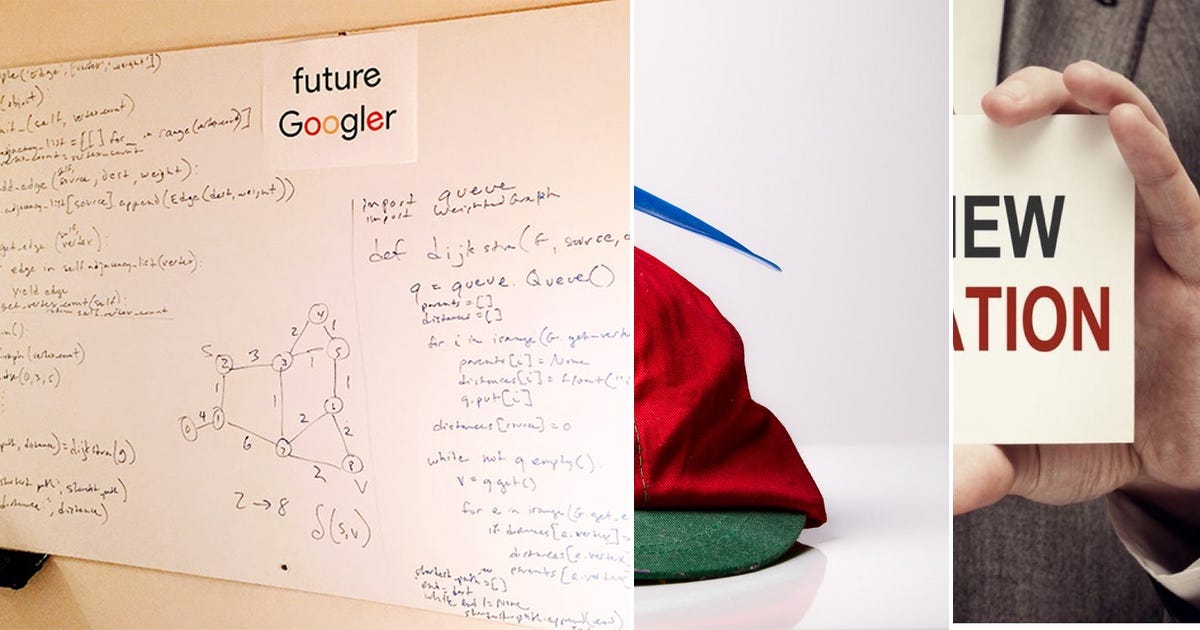 future
Googler
ple('Edge', ['vertex', 'weight'])
(object):
(self, vertex_count)
adjacency_list = [[] for _ in range(vertex_count)]
vertex_count = vertex_count
dd-edge (self, source, dest, weight):
adjacency_list[source].append(Edge(dest, weight))
get_edge (self, vertex):
edge in self.adjacency_list(vertex):
yield edge
get_vertex_count(self):
return self.vertex_count
Graph(vertex_count)
(0,3,5)
path, distance) = dijkstra(g)
'shortest path:', shortest_path)
distance:', distance)
S
2
3
3
2
4
1
1
5
1
1
1
0
4
1
6
7
2
6
2
2
8
V
2 → 8
δ(s,v)
import queue
import WeightedGraph
def dijkstra(G, source,
q = queue.Queue()
parents = []
distances = []
for i in range(G.get-verte
parents[i] = None
distances[i] = float("i
q.put[i]
distances[source] = 0
while not q.empty():
v = q.get()
for e in range(G.get_e
if distances[e.vertex] >
distances[e.vertex
parents[e.vertex
shortest_path = []
end = dest
while end != None
shortest_path.append(end)
IEW
ATION